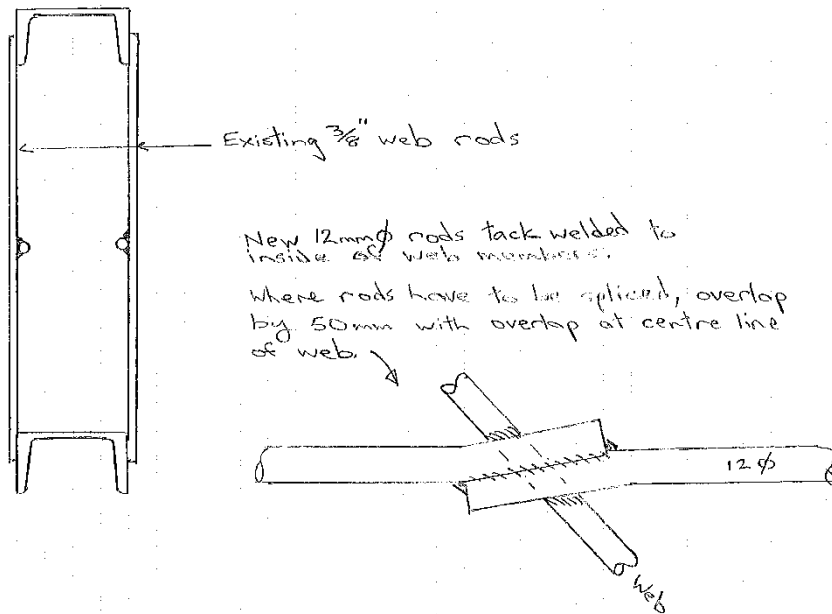 Existing 3/8" web rods
New 12mmϕ rods tack welded to
inside of web members.
where rods have to be spliced, overlap
by 50mm with overlap at centre line
of web.
12ϕ
Web